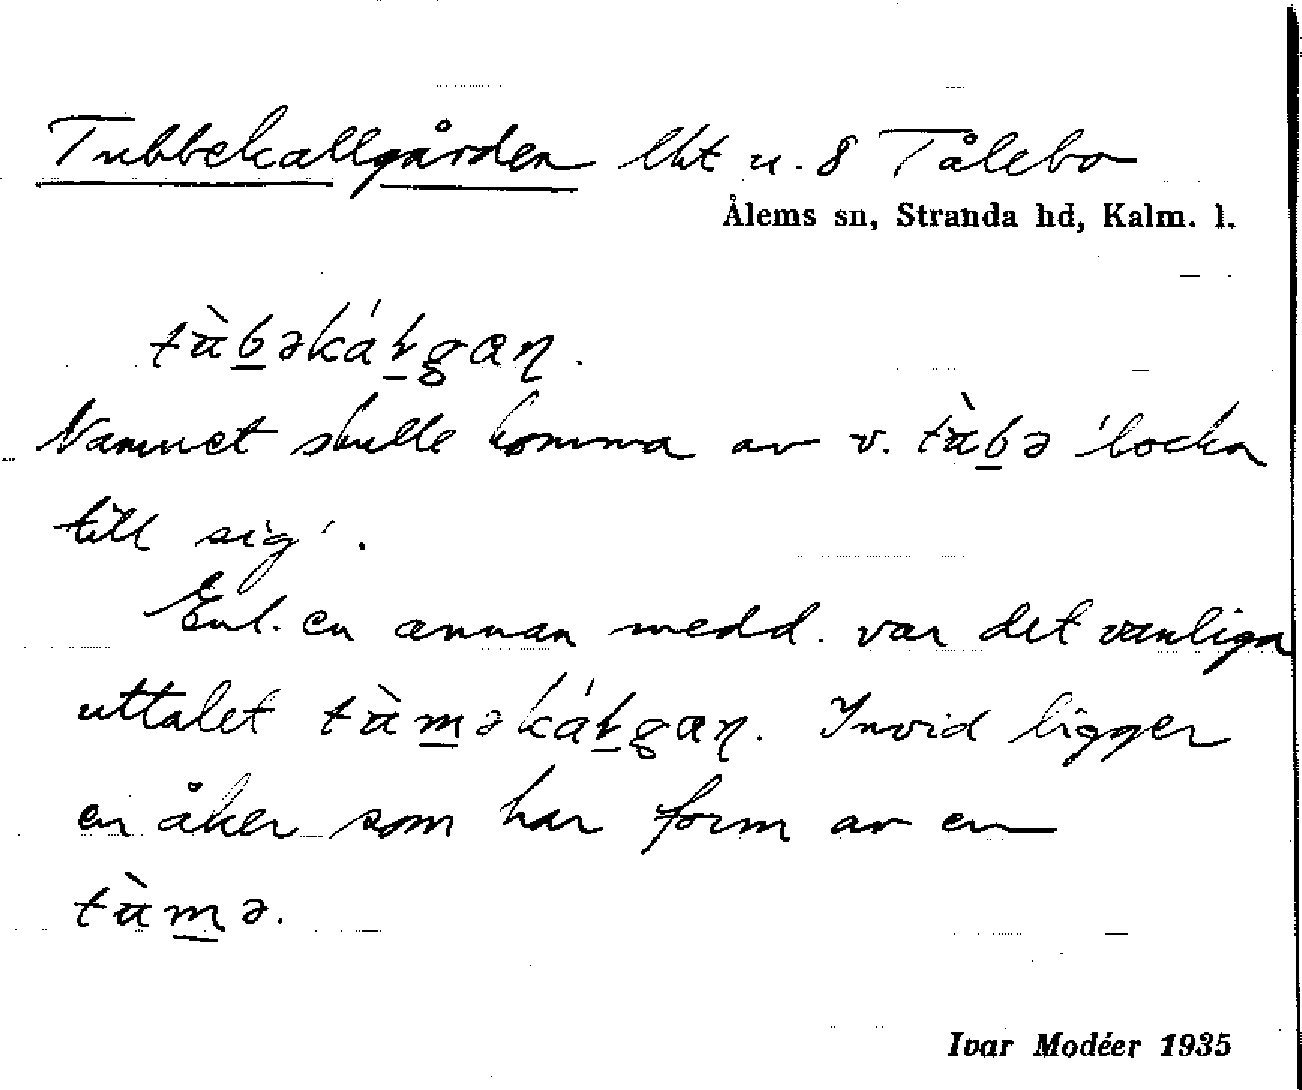 Tubbekallgården lht u. 8 Tålebo
Ålems sn, Stranda hd, Kalm. l.
tùb̲əkáɫ̲gaɳ.
Namnet skulle komma av v. tùb̲ə 'locka
till sig'.
Enl. en annan medd. var det vanliga
uttalet tùm̲əkáɫ̲gaɳ. Invid ligger
en åker som har form av en
tùm̲ə.
Ivar Modéer 1935